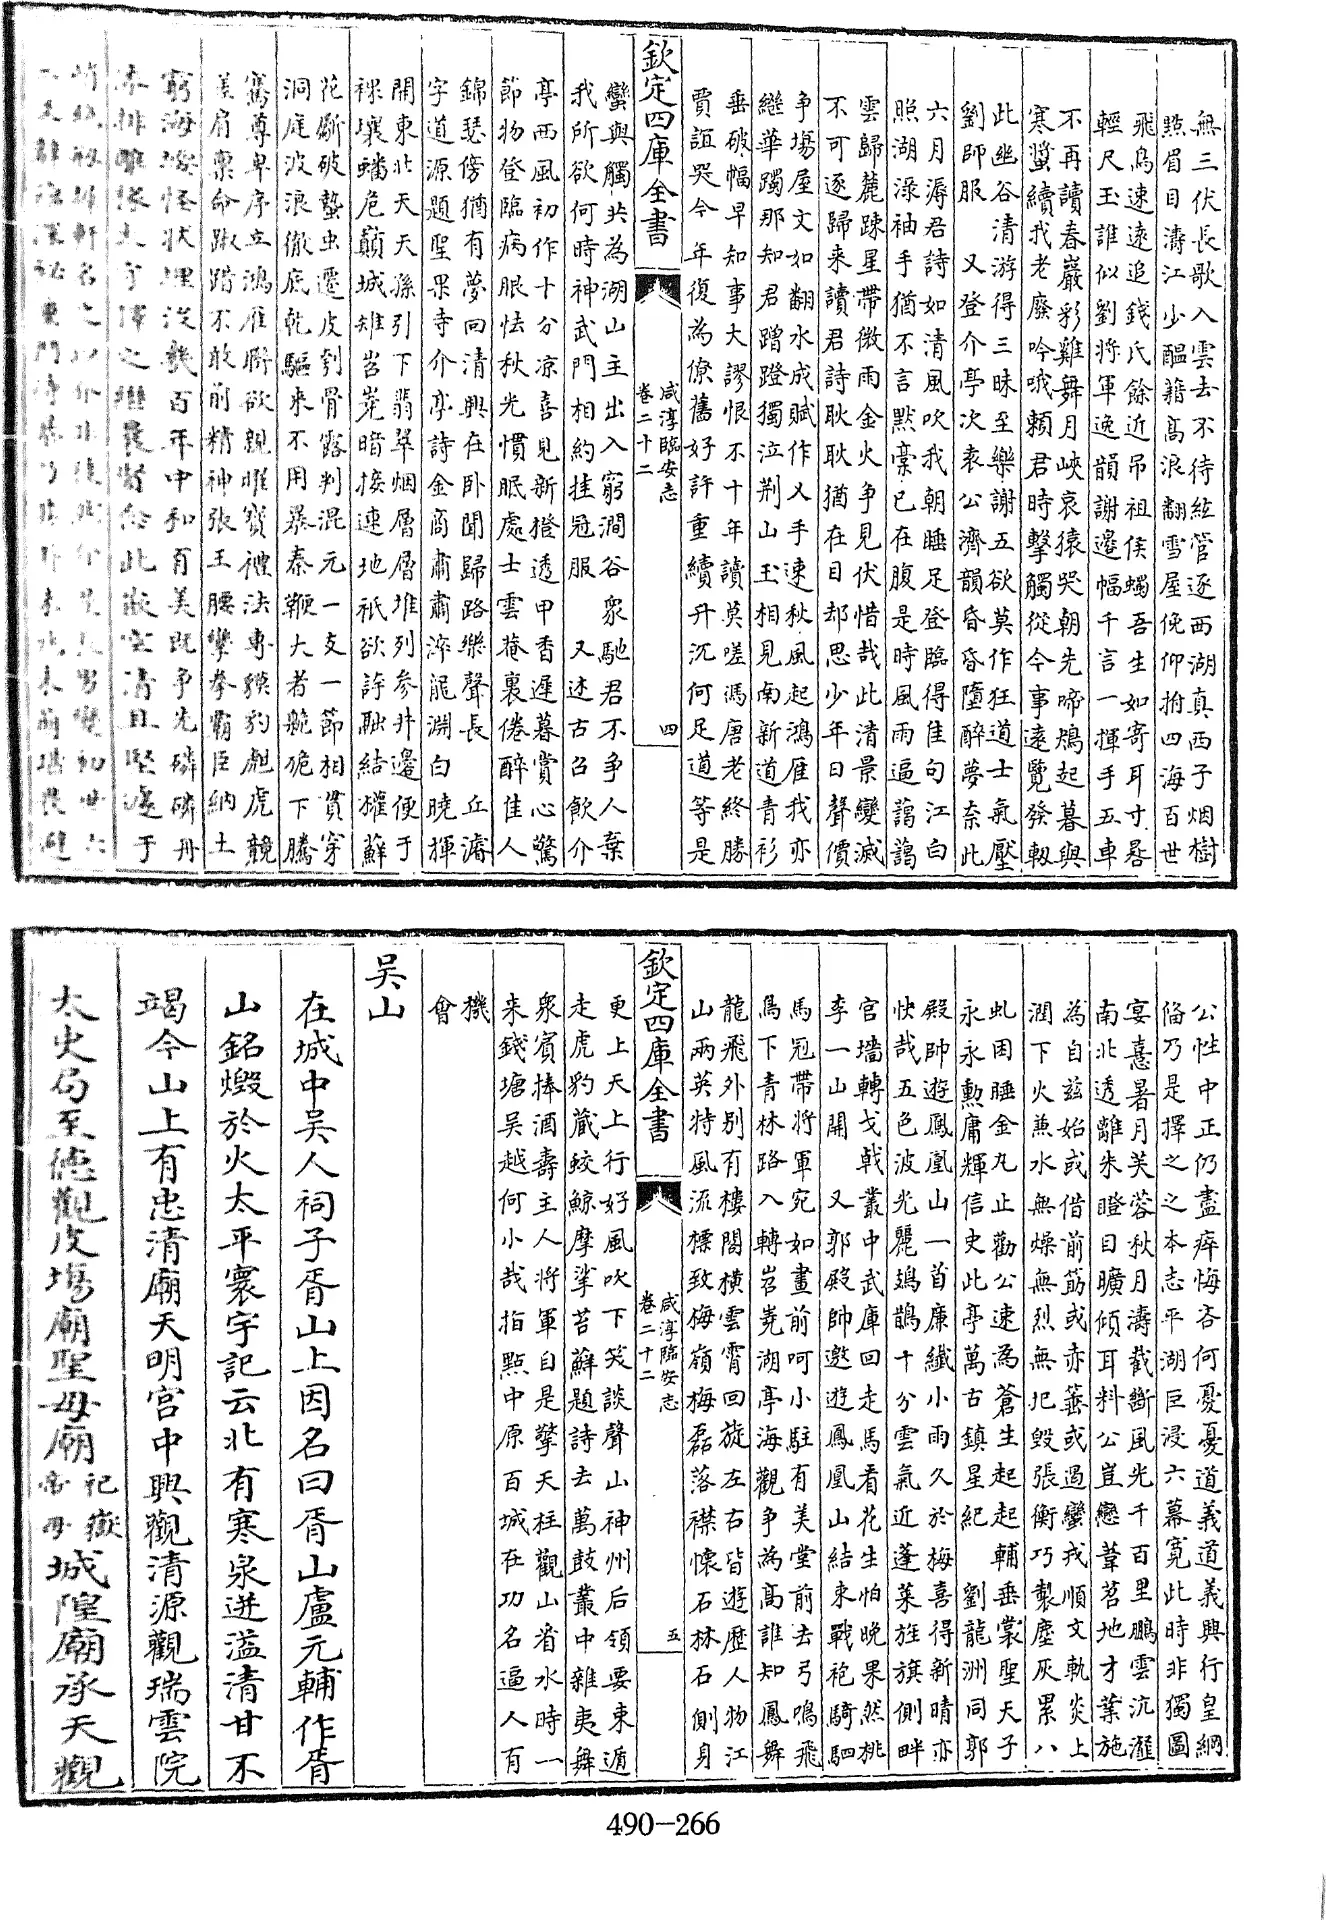 無三伏長歌入雲去不待絃管逐西湖真西子烟樹
㸃眉目濤江少醖籍髙浪翻雪屋俛仰拍四海百世
飛鳥速逺追錢氏餘近弔祖侯蠋吾生如寄耳寸晷
輕尺玉誰似劉將軍逸韻謝邊幅千言一揮手五車
不再讀春巖彩雞舞月峽哀猿哭朝先啼鴂起暮與
寒螀續我老廢吟哦頼君時擊觸從今事逺覽發軔
此幽谷清游得三昧至樂謝五欲莫作狂道士氣壓
劉師服　又登介亭次袁公濟韻昏昏墮醉夢奈此
六月溽君詩如清風吹我朝睡足登臨得佳句江白
照湖渌袖手猶不言黙稾已在腹是時風雨過藹藹
雲歸麓踈星帶微雨金火争見伏惜哉此清景變滅
不可逐歸来讀君詩耿耿猶在目却思少年日聲價
争塲屋文如翻水成賦作乂手速秋風起鴻雁我亦
繼華躅那知君蹭蹬獨泣荆山玉相見南新道青衫
垂破幅早知事大謬恨不十年讀莫嗟馮唐老終勝
賈誼哭今年復為僚舊好許重續升沉何足道等是
欽定四庫全書
咸淳臨安志
卷二十二
四
蠻與觸共為湖山主出入窮澗谷衆馳君不争人棄
我所欲何時神武門相約挂冠服　又述古召飲介
亭西風初作十分凉喜見新橙透甲香遲暮賞心驚
節物登臨病眼怯秋光慣眠處士雲菴裏倦醉佳人
錦瑟傍猶有夢回清興在卧聞歸路樂聲長　丘濬
字道源題聖果寺介亭詩金商肅肅淬龍淵白曉揮
開東北天天孫引下翡翠烟層層堆列參井邊便于
祼壤蟠危巔城雉岩嶤暗接連地祇欲許融結權蘇
花斸破蟄虫遷皮刳骨露判混元一支一節相貫穿
洞庭波浪徹底乾驅来不用暴秦鞭大者齾硊下騰
騫尊卑序立鴻雁聯欲親唯賓禮法専貘豹彪虎競
差肩禀命踧踖不敢前精神張王腰攣拳霸臣納土
窮海塹怪狀埋沒幾百年中和有美既争先磷磷丹
公性中正仍盡瘁悔吝何憂憂道義道義興行皇綱
偹乃是擇之之本志平湖巨浸六幕寛此時非獨圖
宴憙暑月芙蓉秋月濤截斷風光千百里鵬雲沆瀣
南北透離朱瞪目曠傾耳料公豈戀葦苕地才葉施
為自兹始或借前筯或赤藎或過蠻戎順文軌炎上
潤下火兼水無燥無烈無圯毁張衡巧製塵灰累八
虬困睡金丸止勸公速為蒼生起起輔垂裳聖天子
永永勲庸輝信史此亭萬古鎮星紀　劉龍洲同郭
殿帥遊鳳凰山一首廉纖小雨久於梅喜得新晴亦
快哉五色波光麗鳷鵲十分雲氣近蓬莱旌旗側畔
官墻轉戈戟叢中武庫回走馬看花生怕晩果然桃
李一山開　又郭殿帥邀遊鳳凰山結束戰袍騎駟
馬冠帶將軍宛如畫前呵小駐有美堂前去弓鳴飛
鳥下青林路入轉岩嶤湖亭海觀争為髙誰知鳳舞
龍飛外别有樓閣横雲霄回旋左右皆遊歴人物江
山兩英特風流標致梅嶺梅磊落襟懷石林石側身
欽定四庫全書
咸淳臨安志
卷二十二
五
更上天上行好風吹下笑談聲山神州后領要束遁
走虎豹藏蛟鯨摩挲苔蘚題詩去萬鼓叢中雜夷舞
衆賓捧酒壽主人將軍自是擎天柱觀山省水時一
来錢塘吴越何小哉指㸃中原百城在功名逼人有
機
會
吴山
在城中吴人祠子胥山上因名曰胥山盧元輔作胥
山銘燬於火太平寰宇記云北有寒泉迸溢清甘不
竭今山上有忠清廟天明宫中興觀清源觀瑞雲院
太史局至徳觀皮塲廟聖母廟祀嶽帝母城隍廟承天觀
490-266